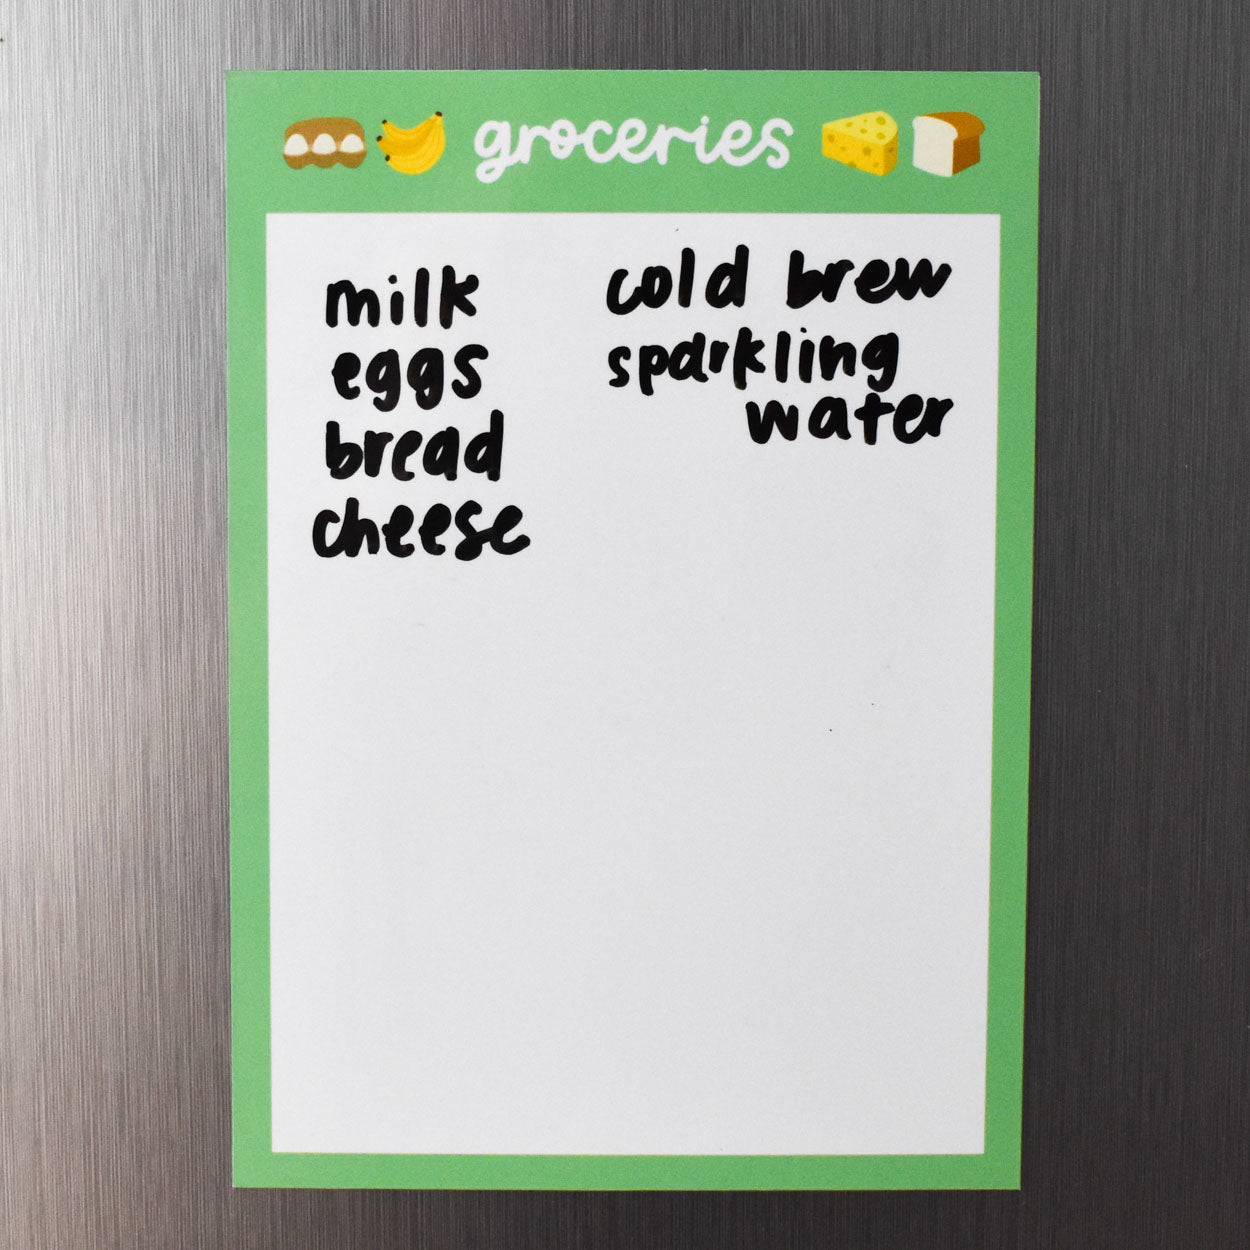 groceries
milk
eggs
bread
cheese
cold brew
sparkling
water